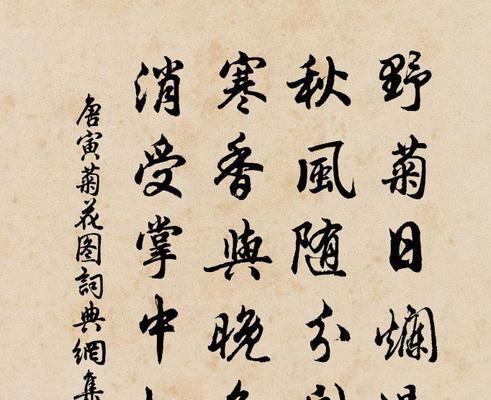 野菊日爛
秋風随分
寒香與晚
消受掌中
唐寅菊花图詞典網集